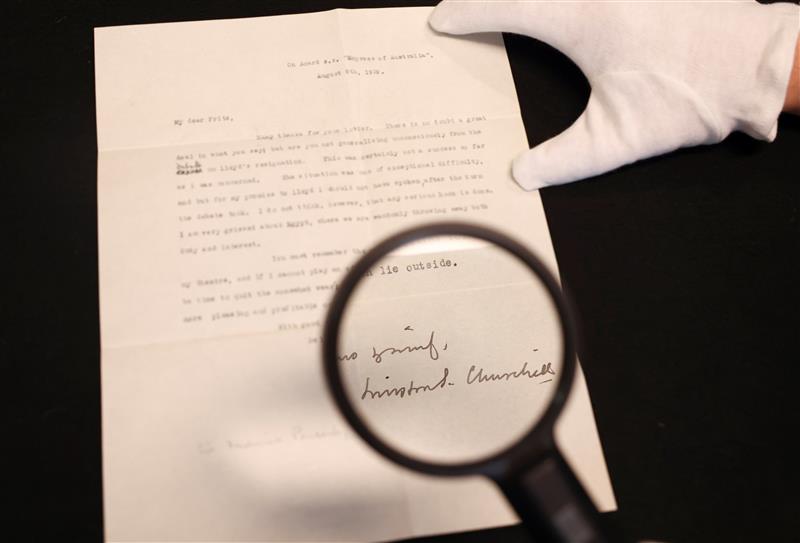 On Board s.s. "Empress of Australia".
August 8th, 1929.
My dear Fritz,
Many thanks for your letter. There is no doubt a great
deal in what you say; but are you not generalising unconsciously from the
Debate on Lloyd's resignation. This was certainly not a success so far
as I was concerned. The situation was one of exceptional difficulty,
and but for my promise to Lloyd I should not have spoken, after the turn
the debate took. I do not think, however, that any serious harm is done.
I am very grieved about Egypt, where we are wantonly throwing away both
duty and interest.
You must remember the
my theatre, and if I cannot play on lie outside.
be time to quit the somewhat
more pleasing and profitable
With good
Winston S. Churchill